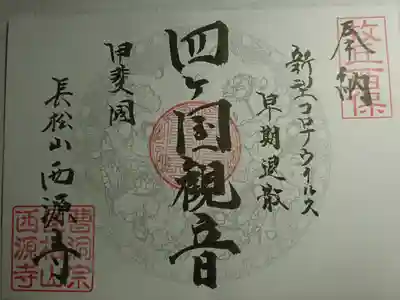 奉納
新型コロナウイルス
早期退散
四ヶ国観音
甲斐国
長松山西源寺
曹洞宗
西源寺